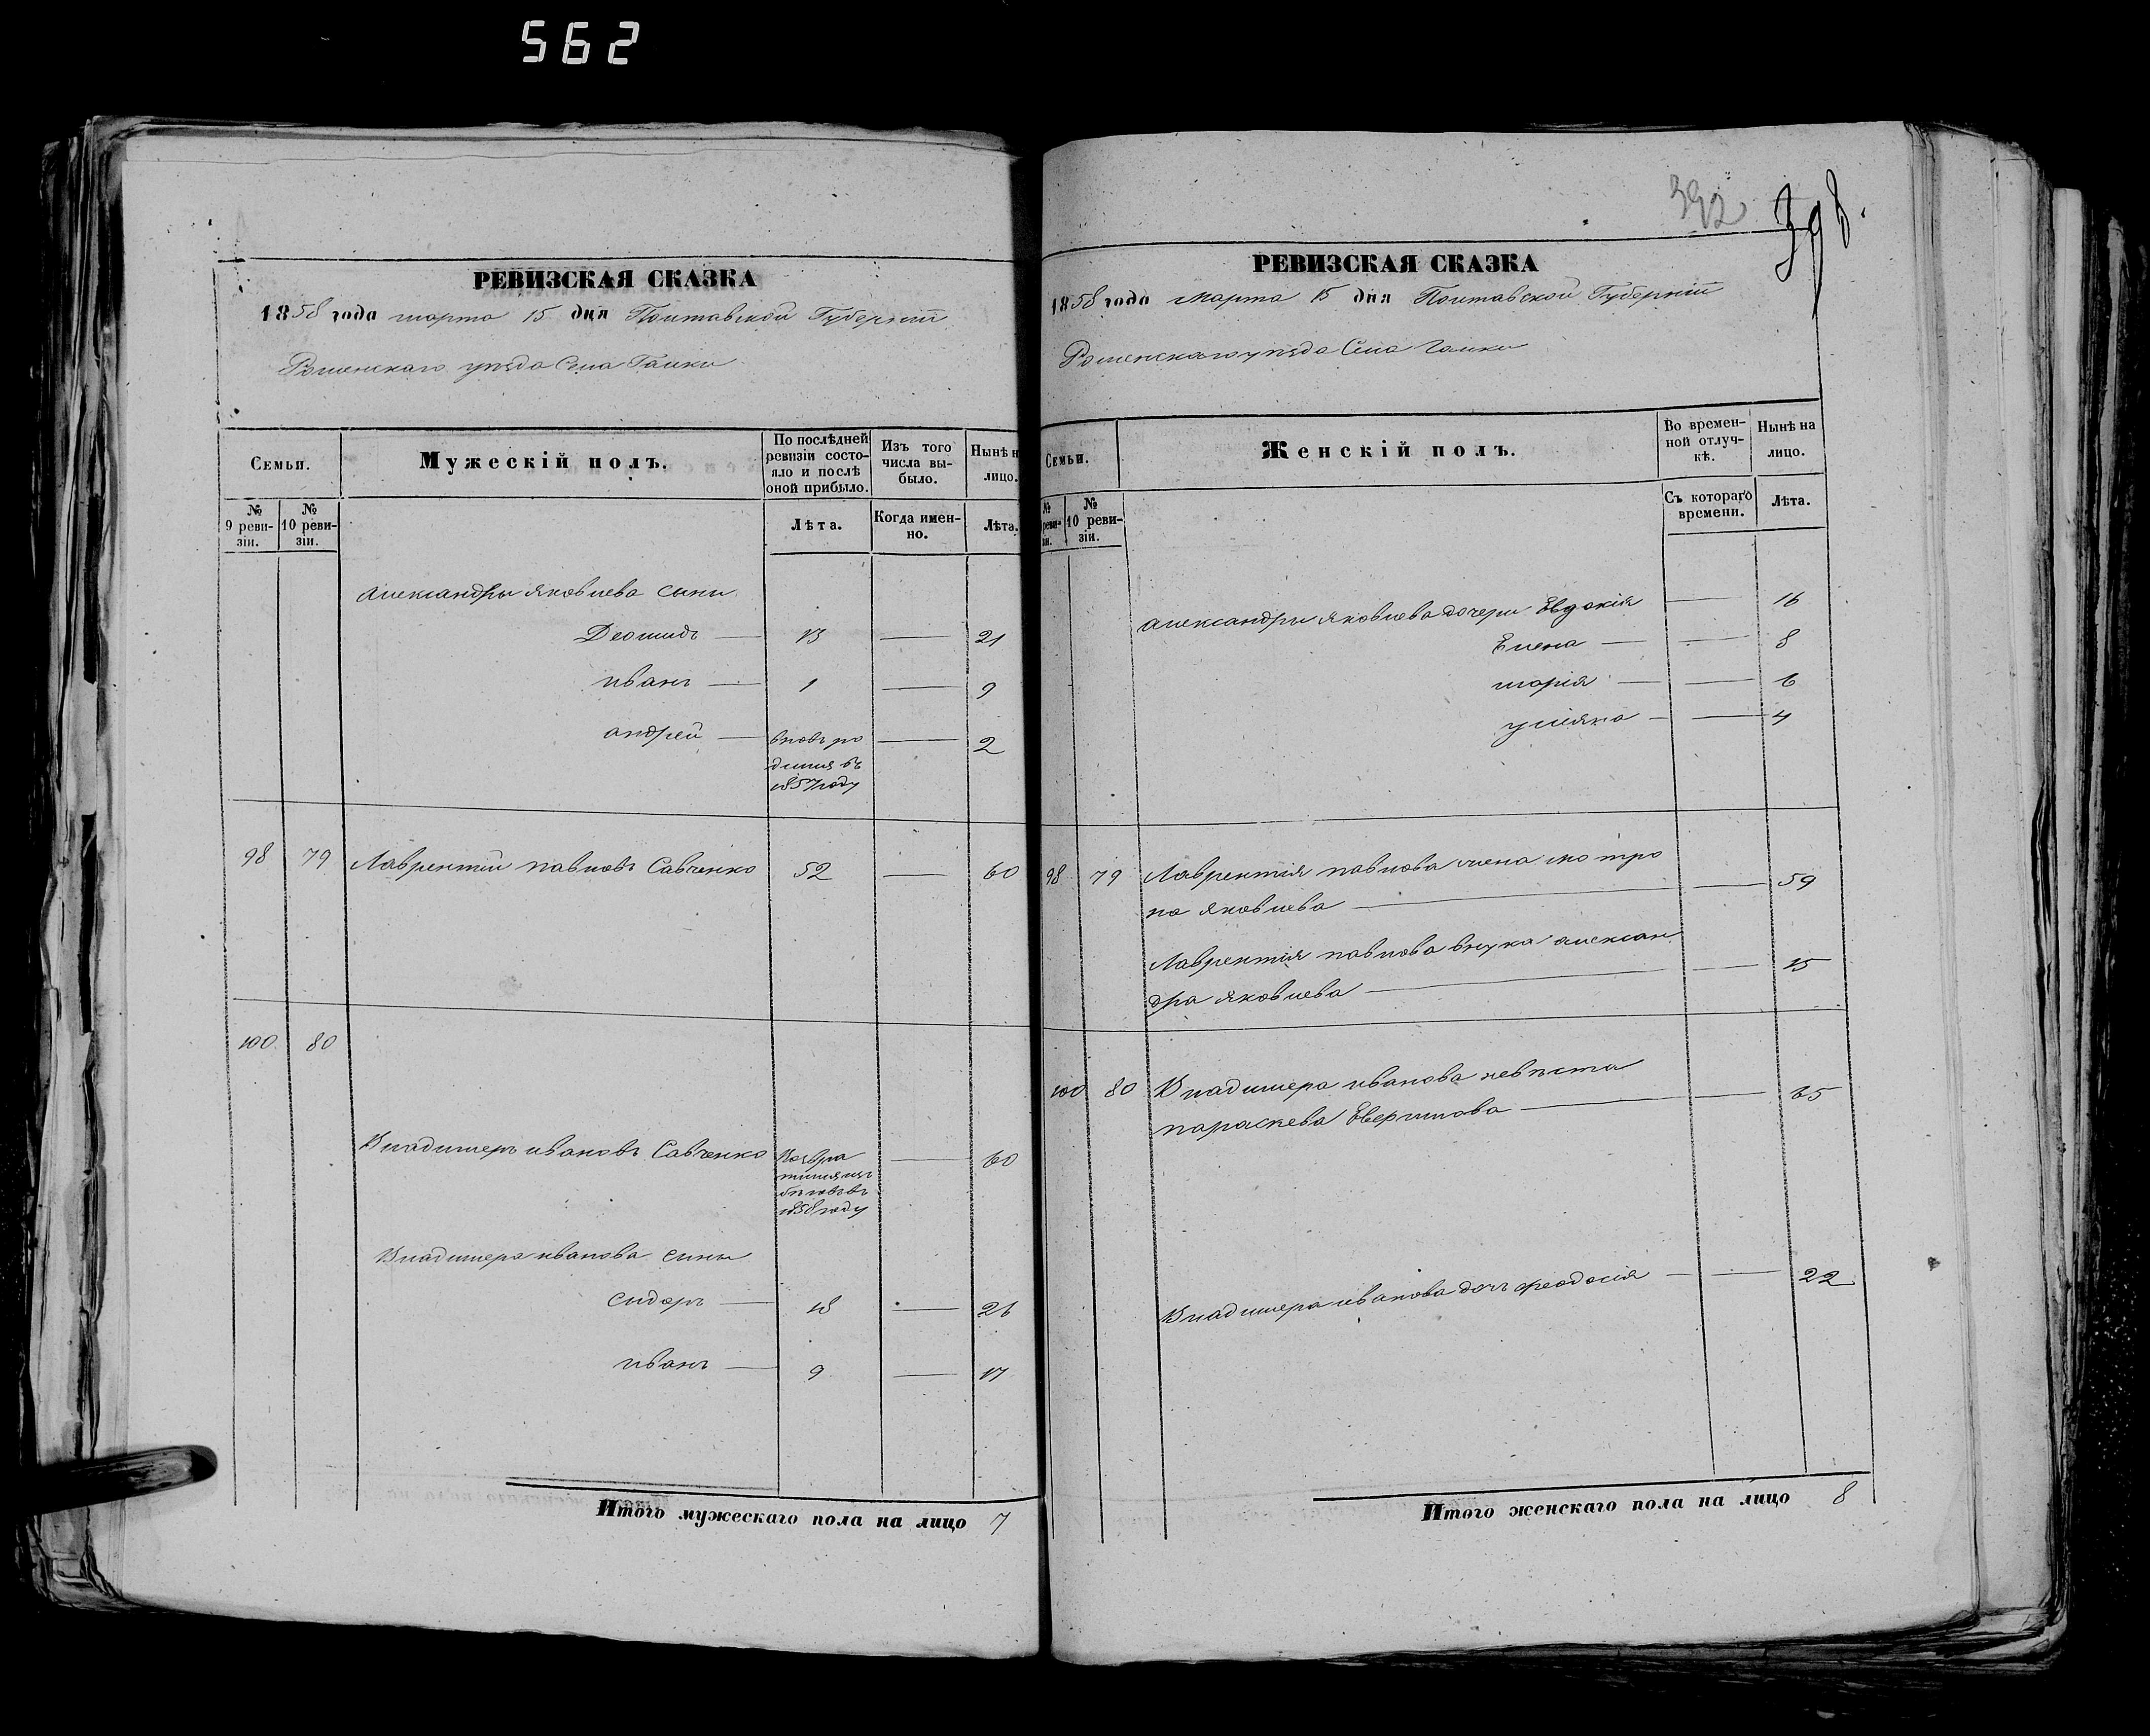 562
РЕВИЗСКАЯ СКАЗКА
1858 года марта 15 дня Полтавской Губерніи
Роменскаго уѣзда Села Галки
Семьи.
Мужескій полъ.
По послѣдней ревизіи состояло и послѣ оной прибыло.
Изъ того числа выбыло.
Нынѣ н
лицо.
№ 9 ревизіи.
№ 10 ревизіи.
Лѣта.
Когда именно.
Лѣта.
александры яковлева сыны
13 — 21
иванъ — 1 — 9
андрей — вновь ро — 2
дился въ
1857 году
98 79 Лаврентій павловъ Савченко 52 — 60
100 80
Владимеръ ивановъ Савченко Возвра — 60
тился изъ
бѣговъ въ
1858 году
Владимера иванова сыны
сидоръ — 18 — 26
иванъ — 9 — 17
Итого мужескаго пола на лицо 7
392 398.
РЕВИЗСКАЯ СКАЗКА
1858 года Марта 15 дня Полтавской Губерніи
Роменскаго уѣзда Села Галки
Семьи.
Женскій полъ.
Во временной отлучкѣ.
Нынѣ на лицо.
№ реви-
зіи.
№ 10 ревизіи.
Съ котораго времени.
Лѣта.
александры яковлева дочери Евдокія — 16
Елена — — 8
марія — — 6
уліяна — — 4
98 79 Лаврентія павлова жена мотро
на яковлева — — 59
Лаврентія павлова внука алексан
дра яковлева — — 15
100 80 Владимера иванова невѣста
параскева — — 65
Владимера иванова дочь феодосія — — 22
Итого женскаго пола на лицо 8